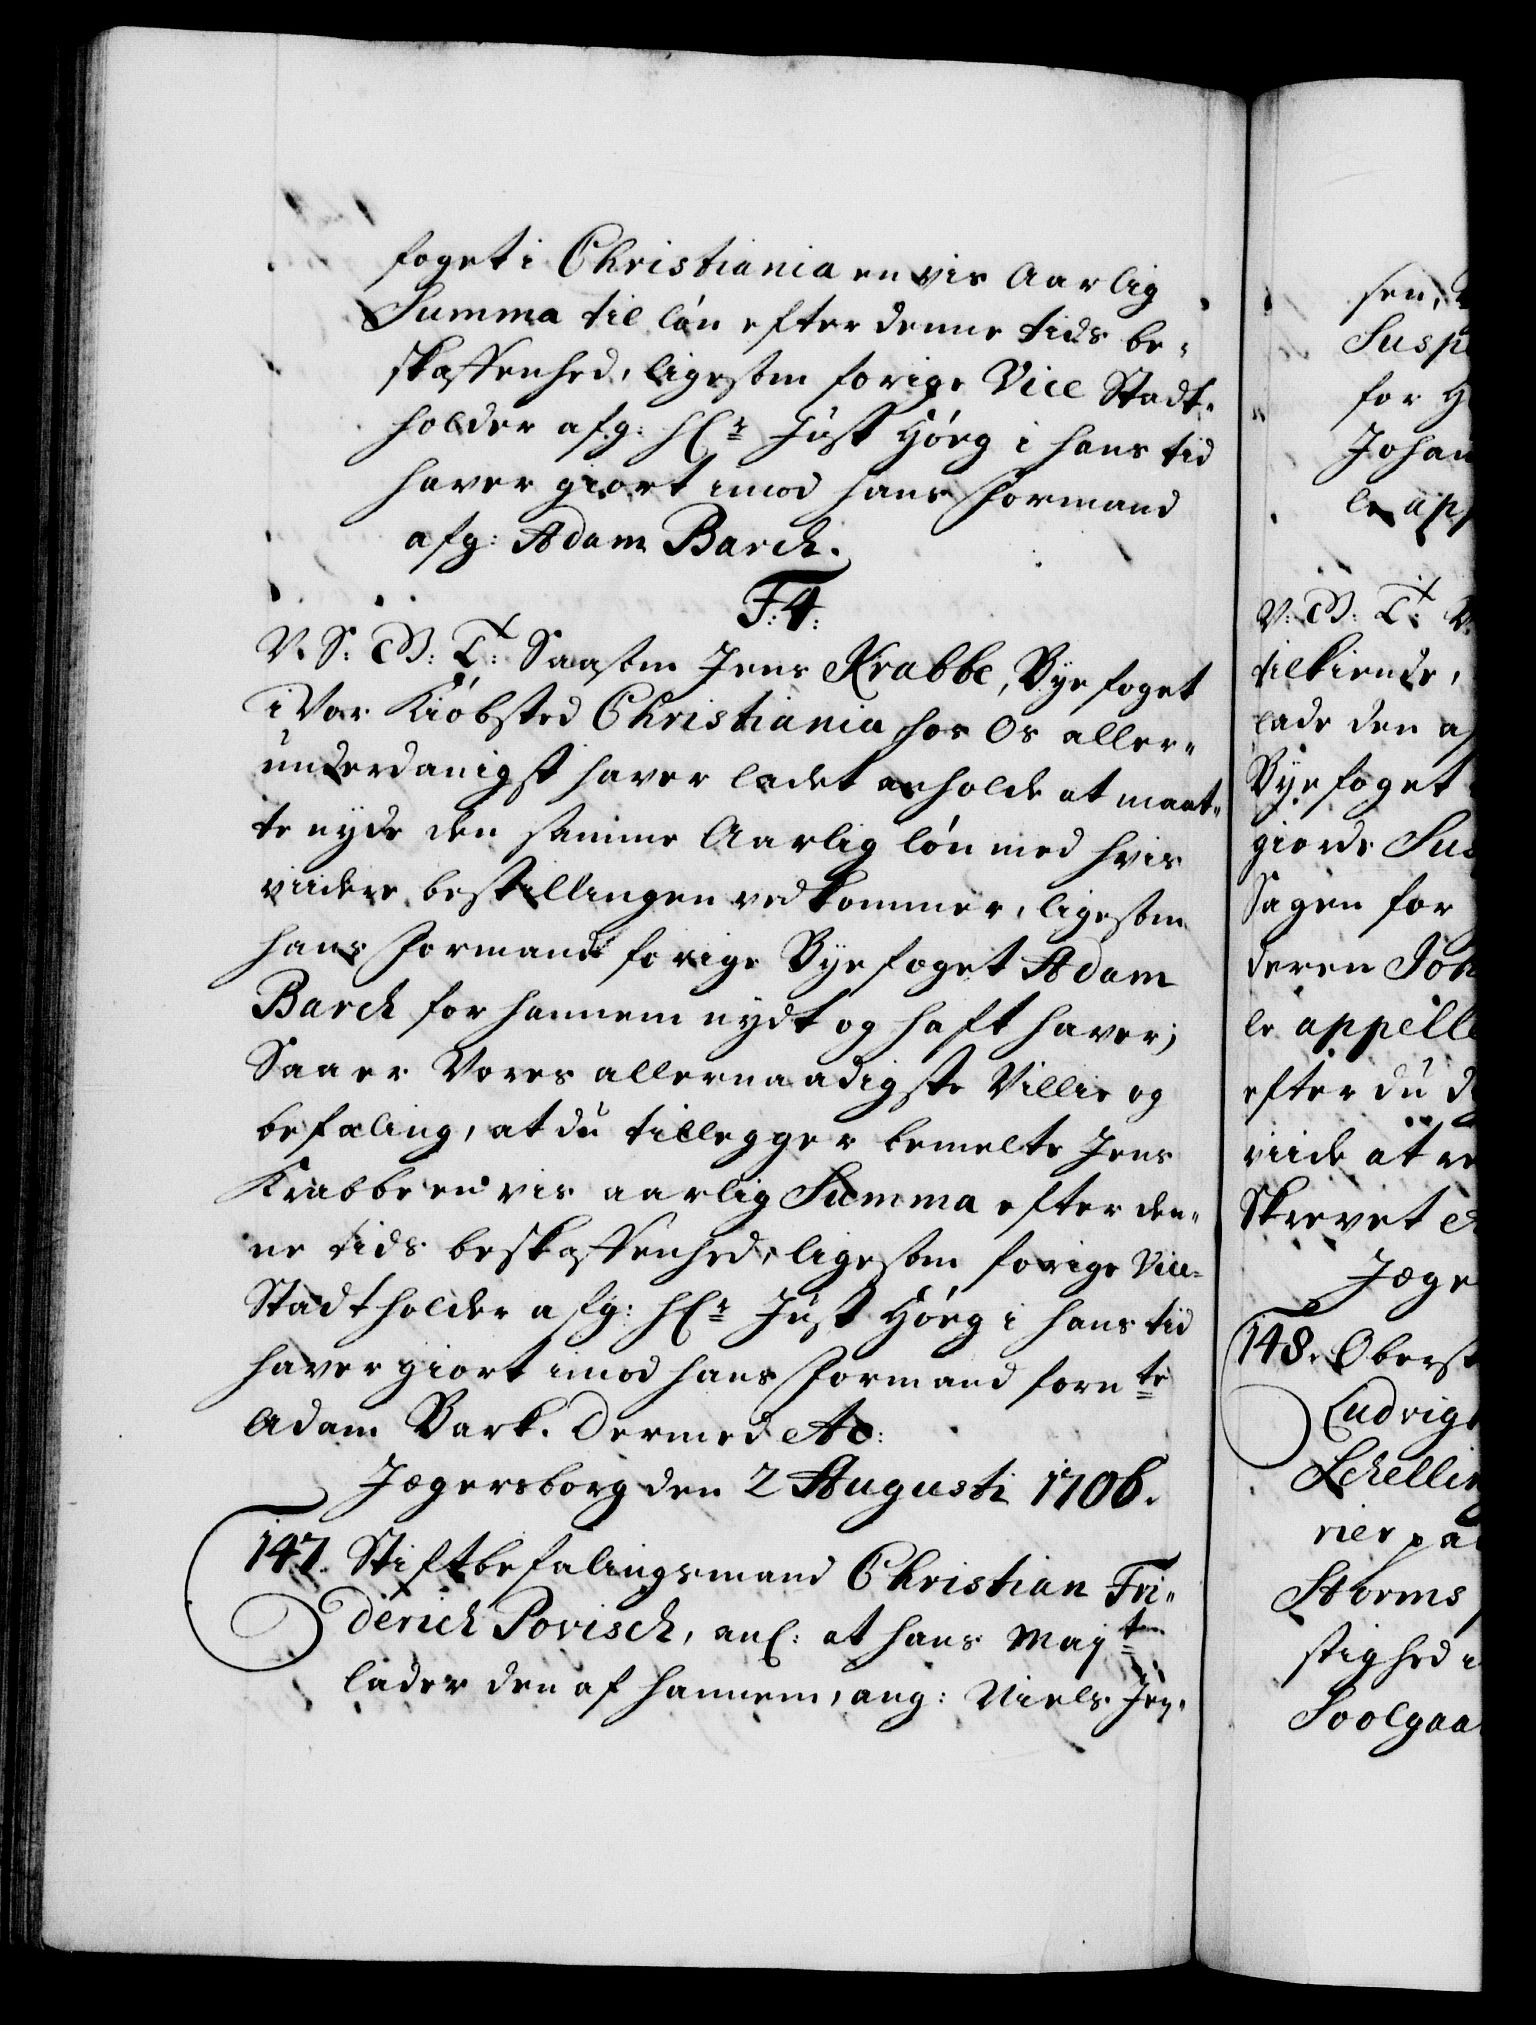 foget i Christiania en vis Aarlig
Summa til løn efter denne tids be-
skaffenhed, ligesom forige Vice Stadt-
holder afg: Hr Just Høeg i hans tid
haver giort imod hans Formand
afg: Adam Barck.
F: 4:
V. S: G: T: Saasom Jens Krabbe, Byefoget
i Vor Kiøbsted Christiania hos Os aller-
underdanigst haver ladet anholde at maat-
te nyde den samme Aarlig løn med hvis
viidere bestillingen vedkommer, ligesom
hans Formand forige Byefoget Adam
Barck for hannem nydt og haft haver;
Saa er Vores allernaadigste Villie og
befaling, at du tillegger bemelte Jens
Krabbe en vis aarlig Summa efter den-
ne tids beskaffenhed, ligesom forige Vice-
Stadtholder afg: Hr Just Høeg i hans tid
haver giort imod hans Formand fornte
Adam Bark. Dermed etc:
Jægersborg den 2 Augusti 1706.
147. Stiftbefalingsmand Christian Fri-
derich Povisch, anl: at hans Mayten
lader den af hannem, ang: Niels Jen-
sen,
Susp
for H
Johan
le app
V: G: T: V.
tilkiende,
lade den a
Byefoget
giorde Sus
Sagen for
deren Joh
le appelle
efter du d
viide at re
Skrevet
Jæge
148. Oberst
Ludvig
Schellin
rier paa
Storms
stighed i
Soolgaa